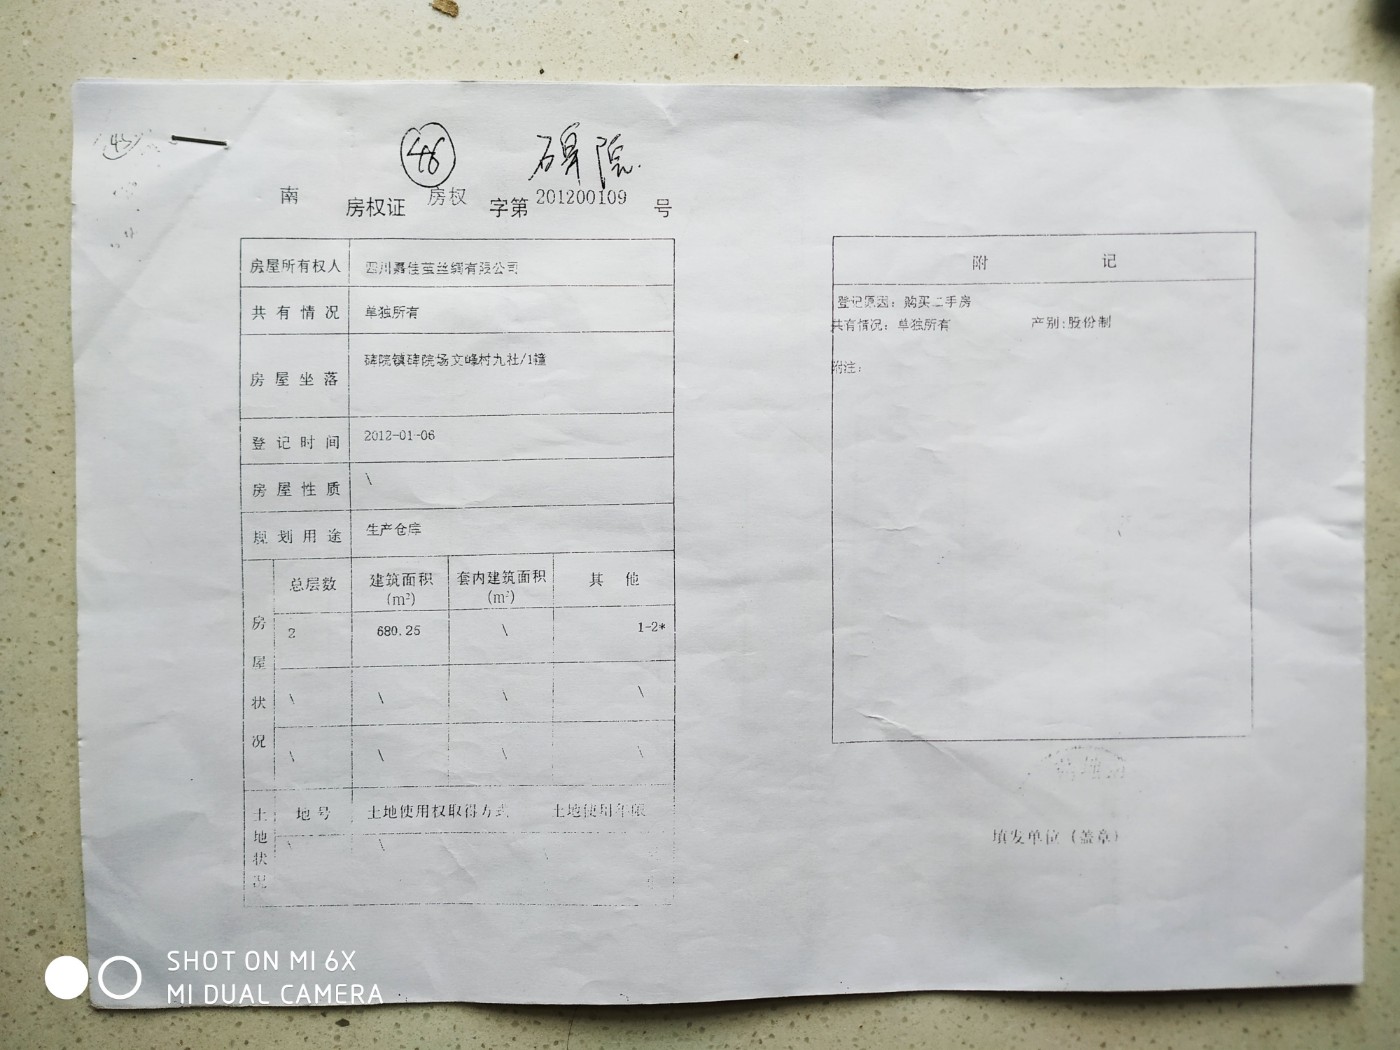 46 碑院
南 房权证 房权 字第 201200109 号
房屋所有权人 四川嘉佳萤丝绸有限公司
共有情况 单独所有
房屋坐落 碑院镇碑院场文峰村九社/1幢
登记时间 2012-01-06
房屋性质 \
规划用途 生产仓库
房屋状况
总层数 建筑面积(m²) 套内建筑面积(m²) 其他
2 680.25 \ 1-2*
\ \ \ \
\ \ \ \
土地状况
地号 土地使用权取得方式 土地使用年限
\ \
附记
登记原因：购买二手房
共有情况：单独所有 产别:股份制
附注：
填发单位（盖章）
SHOT ON MI 6X
MI DUAL CAMERA